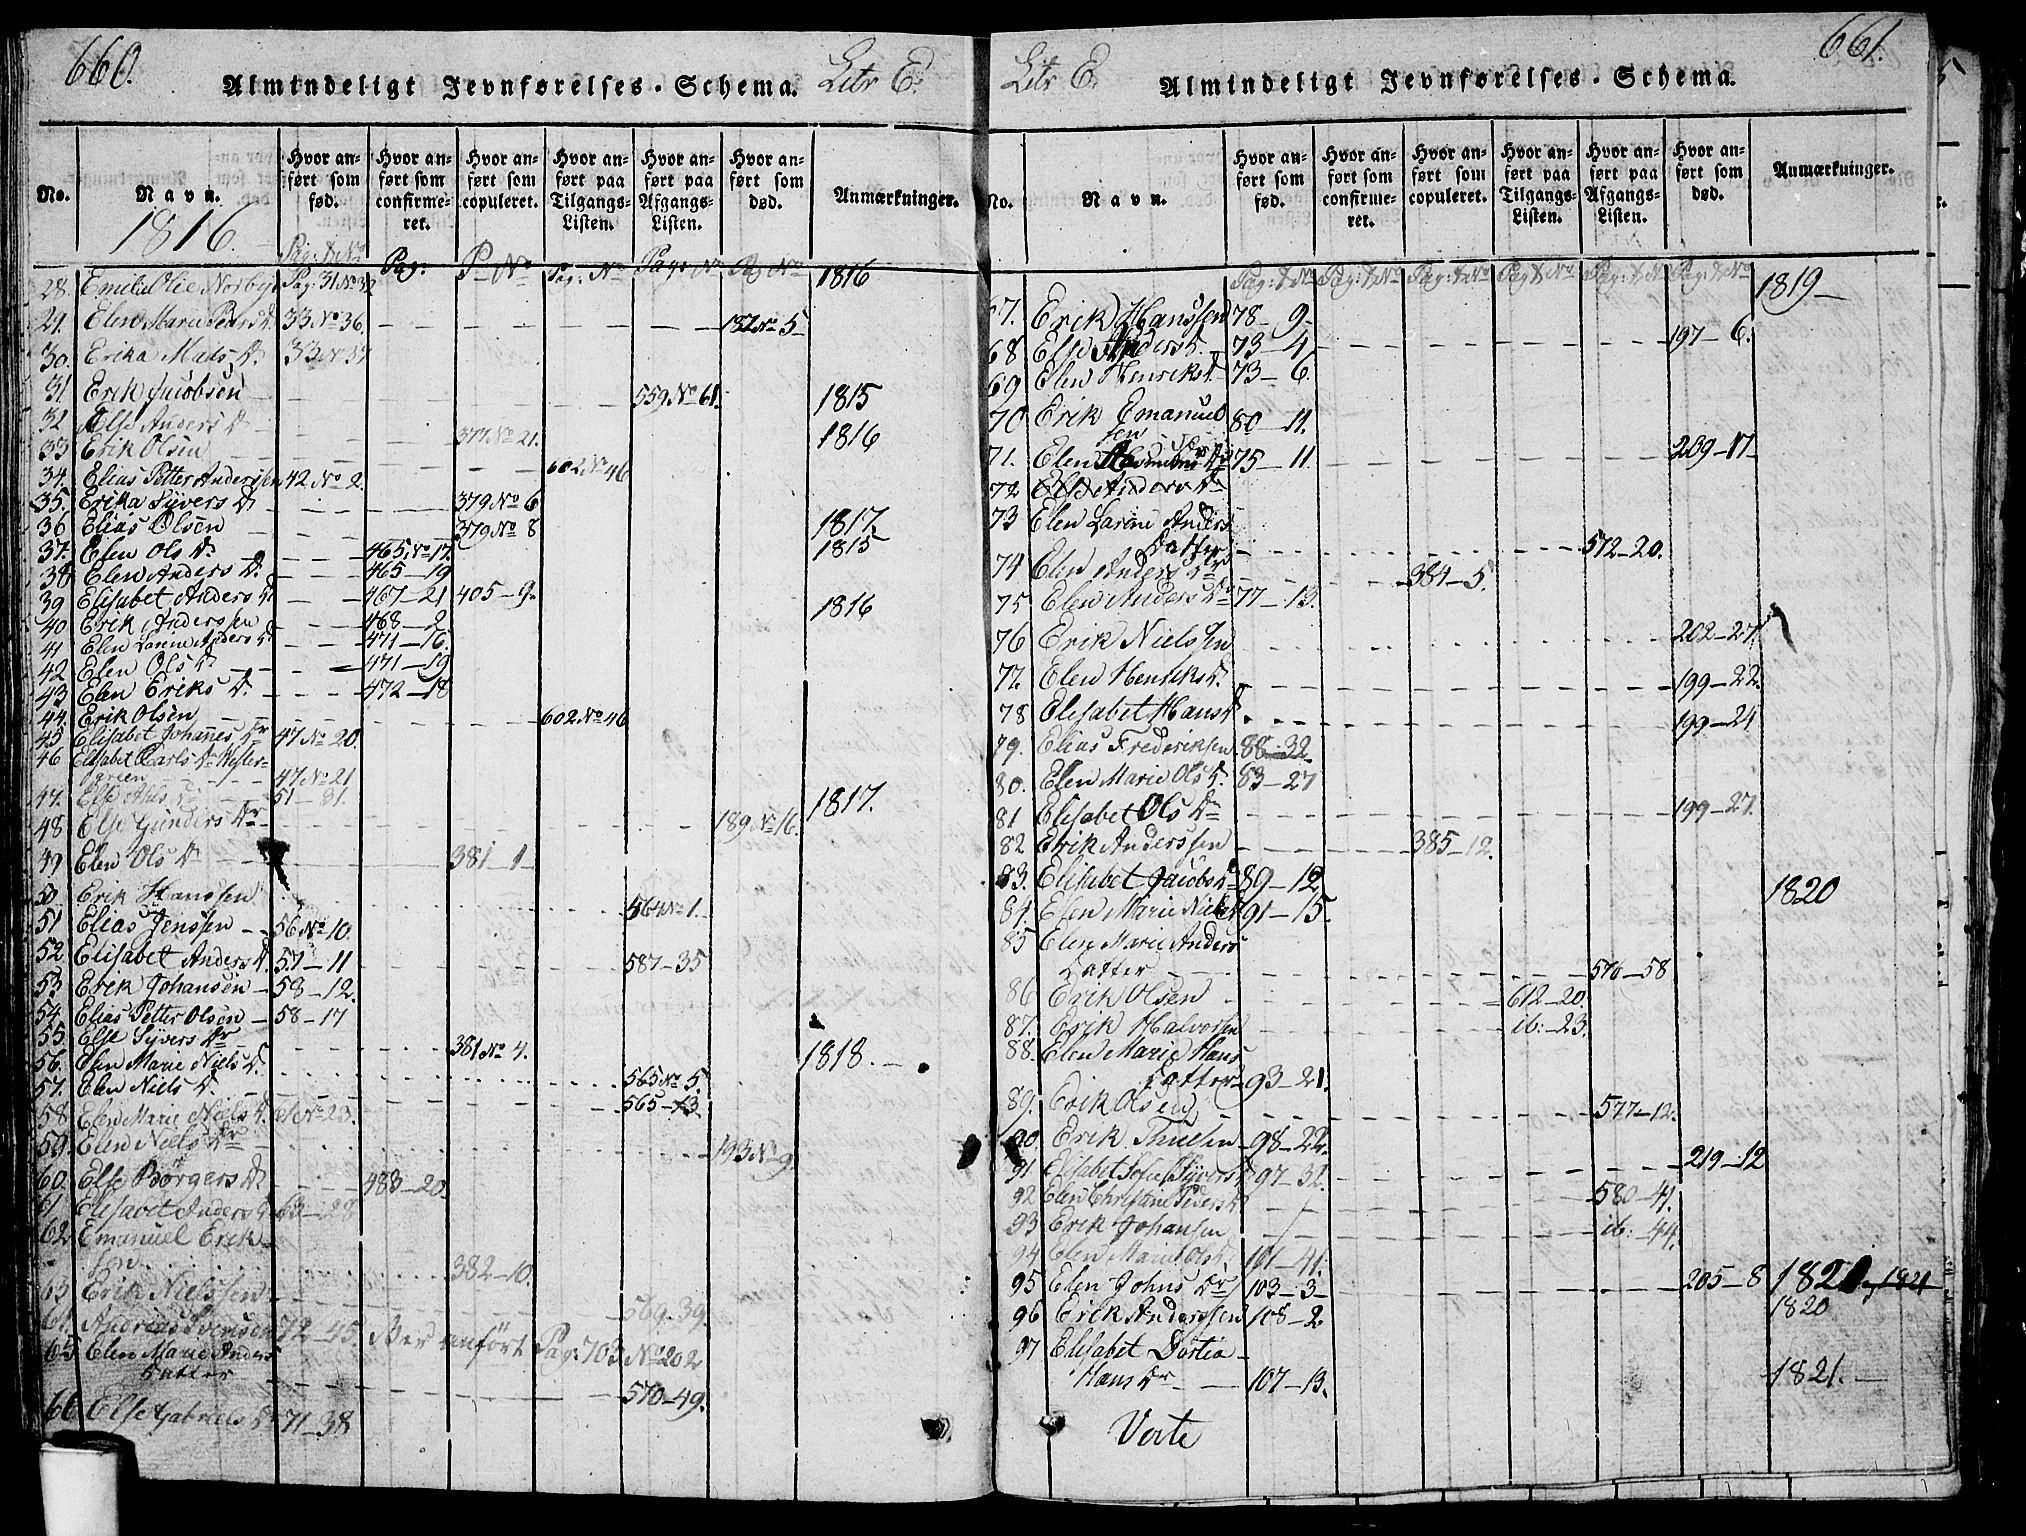 660.
Almindeligt Jevnførelses-Schema. Litr E.
No. Navn. Hvor anført som fød. Hvor anført som confirmeret. Hvor anført som copuleret. Hvor anført paa Tilgangs-Listen. Hvor anført paa Afgangs-Listen. Hvor anført som død. Anmærkninger.
1816.
Pag: & No Pag: P No Pag. No Pag: No Pag No
28. Olie Norbye Pag: 31 No 32 1816
29. Elen Marie Peders D. 33 No 36. 182 No 5
30. Erika Mats D. 33 N 39
31 Erik Jacobsen 559 No 61. 1815
32 Else Anders D. 377 No 21. 1816
33 Erik Olsen 602 No 46
34. Elias Petter Anderssen 42 No 2.
35. Erika Syvers D. 379 No 6
36 Elias Olsen 379 No 8 1817.
37. Elen Ols D. 465 No 17. 1815
38 Elen Anders D. 465-19
39 Elisabet Anders D. 467-21 405-9. 1816
40 Erik Anderssen 468-2
41 Elen Larine Anders D. 471-16.
42 Elen Ols D. 471-19
43 Elen Eriks D. 472-18
44. Erik Olsen 602 No 46
45 Elisabet Johannes Dr 47 No 20.
46 Elisabet Carls Dr Wester-
green 47 No 21
47. Else Nils D. 51-81. 1817.
48 Else Gunders Dr 189 No 16.
49 Elen Ols D. 381-1
50 Erik Hanssen 564 No 1.
51 Elias Jenssen 56 No 10.
52 Elisabet Anders D. 57-11 587-35
53 Erik Johansen 58-12.
54. Elias Petter Olsen 58-17
55. Else Syvers Dr 381 No 4.
56. Elen Marie Niels D. 565 No 5. 1818.
57. Elen Niels D. 565-13.
58 Elen Marie Niels D. No 23.
59. Elen Niels Dr 193 No 9.
60. Else Børgers D. 483-20.
61 Elisabet Anders D. 63-28
62 Emanuel Erik-
sen 382-10.
63 Erik Nielssen 569. 39.
64. Andreas Svensen 72-45. Ber anført Pag: 703 No 202
65 Elen Marie Anders
Datter 570-49.
66 Else Gabriels D. 71-38
661.
Litr E. Almindeligt Jevnførelses-Schema.
No. Navn. Hvor anført som fød. Hvor anført som confirmeret. Hvor anført som copuleret. Hvor anført paa Tilgangs-Listen. Hvor anført paa Afgangs-Listen. Hvor anført som død. Anmærkninger.
Pag: & No Pag: & No Pag: & No Pag & No Pag: & No Pag: & No 1819
67. Erik Hanssen 78-9.
68 Else Anders D. 73-4. 197-6.
69 Elen Henriks D. 73-6.
70 Erik Emanuel
sen 80-11.
71. Elen Dr 75-11 209-17
72 Else Anders Dr
73 Elen Larine Anders
Datter 572-20.
74 Elen Anders Dr 384-5.
75 Elen Anders Dr 77-13.
76 Erik Nielssen 202-27.
77. Elen Henriks D. 199-22.
78 Elisabet Hans D. 199-24
79. Elias Frederiksen 88-32.
80. Elen Marie Ols D. 83-27
81 Elisabet Ols Dr 199-27.
82 Erik Anderssen 385-12.
83. Elisabet Jacobs Dr 89-12. 1820
84. Elen Marie Niels D 91-15.
85 Elen Marie Anders
Datter 570-58
86 Erik Olsen 612-20.
87. Erik Halvorsen ib:-23.
88. Elen Marie Hans
Datter 93-21.
89. Erik Olsen 577-12.
90 Erik 98-22.
91 Elisabet Sofie Syvers D 97-32. 219-12
92 Elen Christine Peders D 580-41.
93 Erik Johansen ib:-44.
94 Elen Marie Ols D. 101-41.
95 Elen Johns Dr 103-3. 205-8 1821, 1821
96 Erik Anderssen 108-2. 1820
97 Elisabet Dortia
Hans Dr 107-13. 1821.
Verte